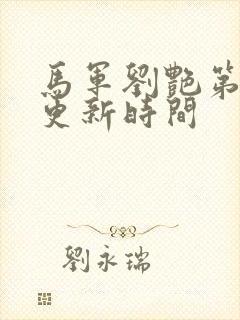 馬軍劉艷第
更新時間
劉永瑞